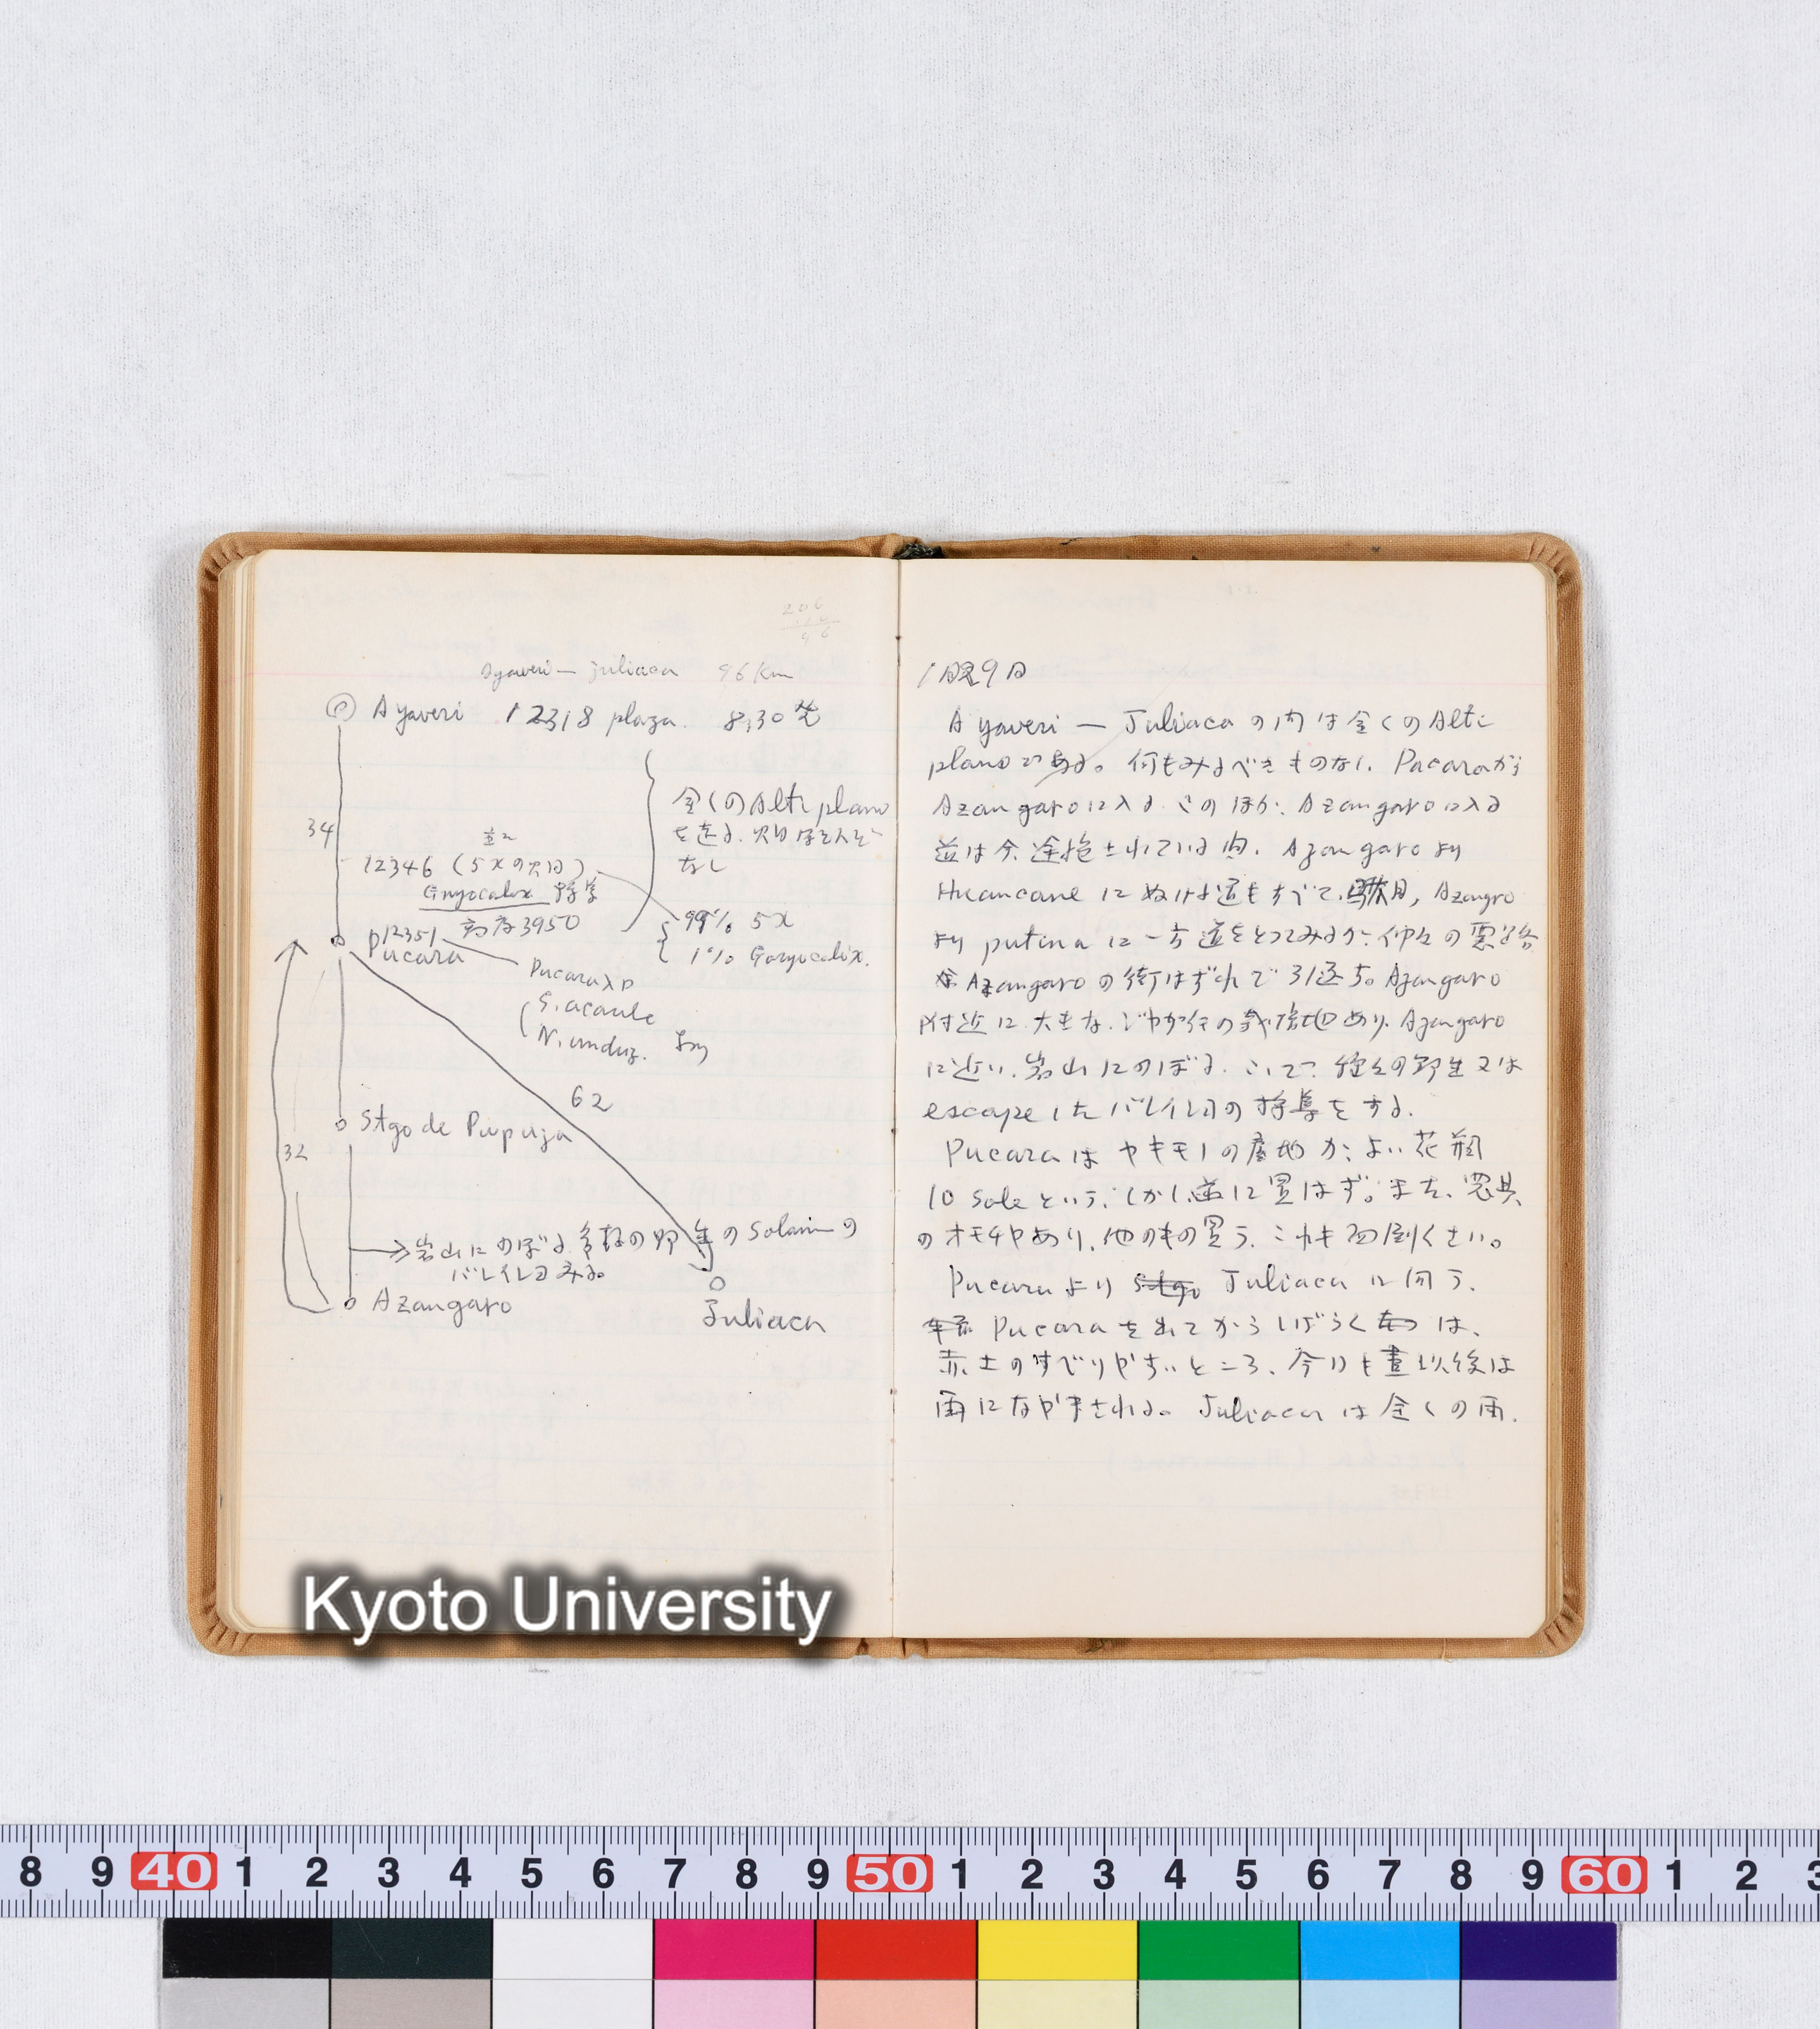 206
96
Ayaveri — Juliaca 96 km
Ayaveri 12318 plaza. 8,30 発
全くのAlti plano
を走る. 畑ほとんど
なし
34
12346 (5xの畑)
Gonyocalix 採集
高度3950
P12351
Pucara
99% 5x
1% Gonyocalix.
Pucara入口
S. acaule
N. unduz.
62
Stgo de Pupuja
32
岩山にのぼる 多数の野生のSolanumの
バレイショみる。
Azangaro
Juliaca
1月29日
Ayaveri — Juliacaの内は全くのAlti
planoである。何もみるべきものなし. Pucaraから
Azangaroに入る. このほか. Azangaroに入る
道は今. 途絶されている由. Azangaroより
Huancaneにぬける道もすべて駄目, Azangro
より putinaに一寸道をとってみるが. 仲々の悪路
Azangaroの街はずれで引返す。Azangaro
附近に大きな. じゃがいもの栽培地あり. Azangaro
に近い. 岩山にのぼる. ここで 種々の野生又は
escapeしたバレイショの採集をする.
Pucaraはヤキモノの産地が. よい花瓶
10 soleという. しかし遂に買はず。また. 家具
のオモチャあり. 他のもの買う. これも面倒くさい。
Pucaraより Stgo Juliacaに向う.
Pucaraを出てからしばらくは、
赤土のすべりやすいところ、今日も晝以後は
雨になやまされる。Juliacaは全くの雨.
Kyoto University
8 9 40 1 2 3 4 5 6 7 8 9 50 1 2 3 4 5 6 7 8 9 60 1 2 3